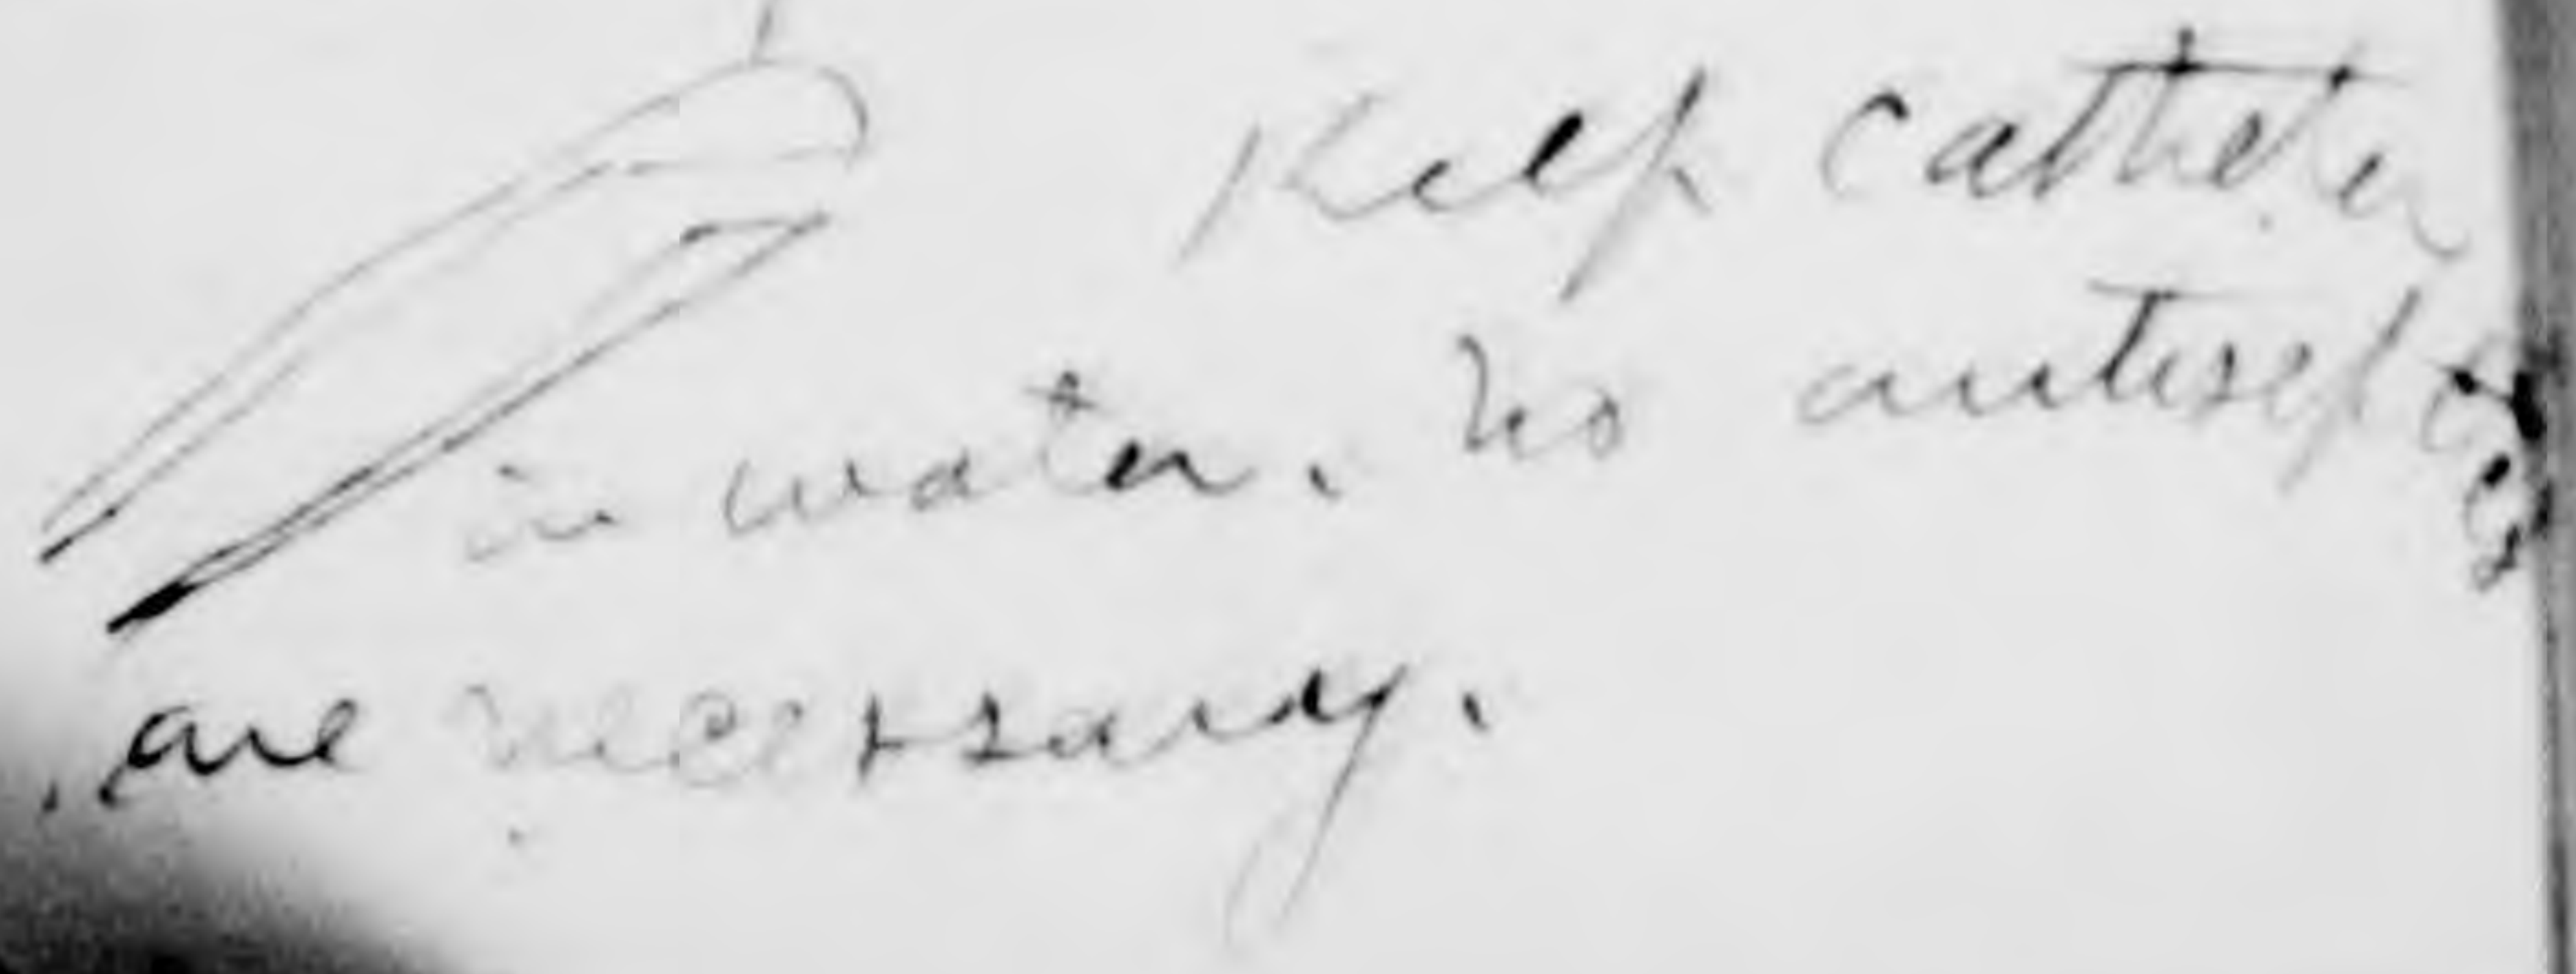 Keep catheter
in water. No antiseptics
are necessary.